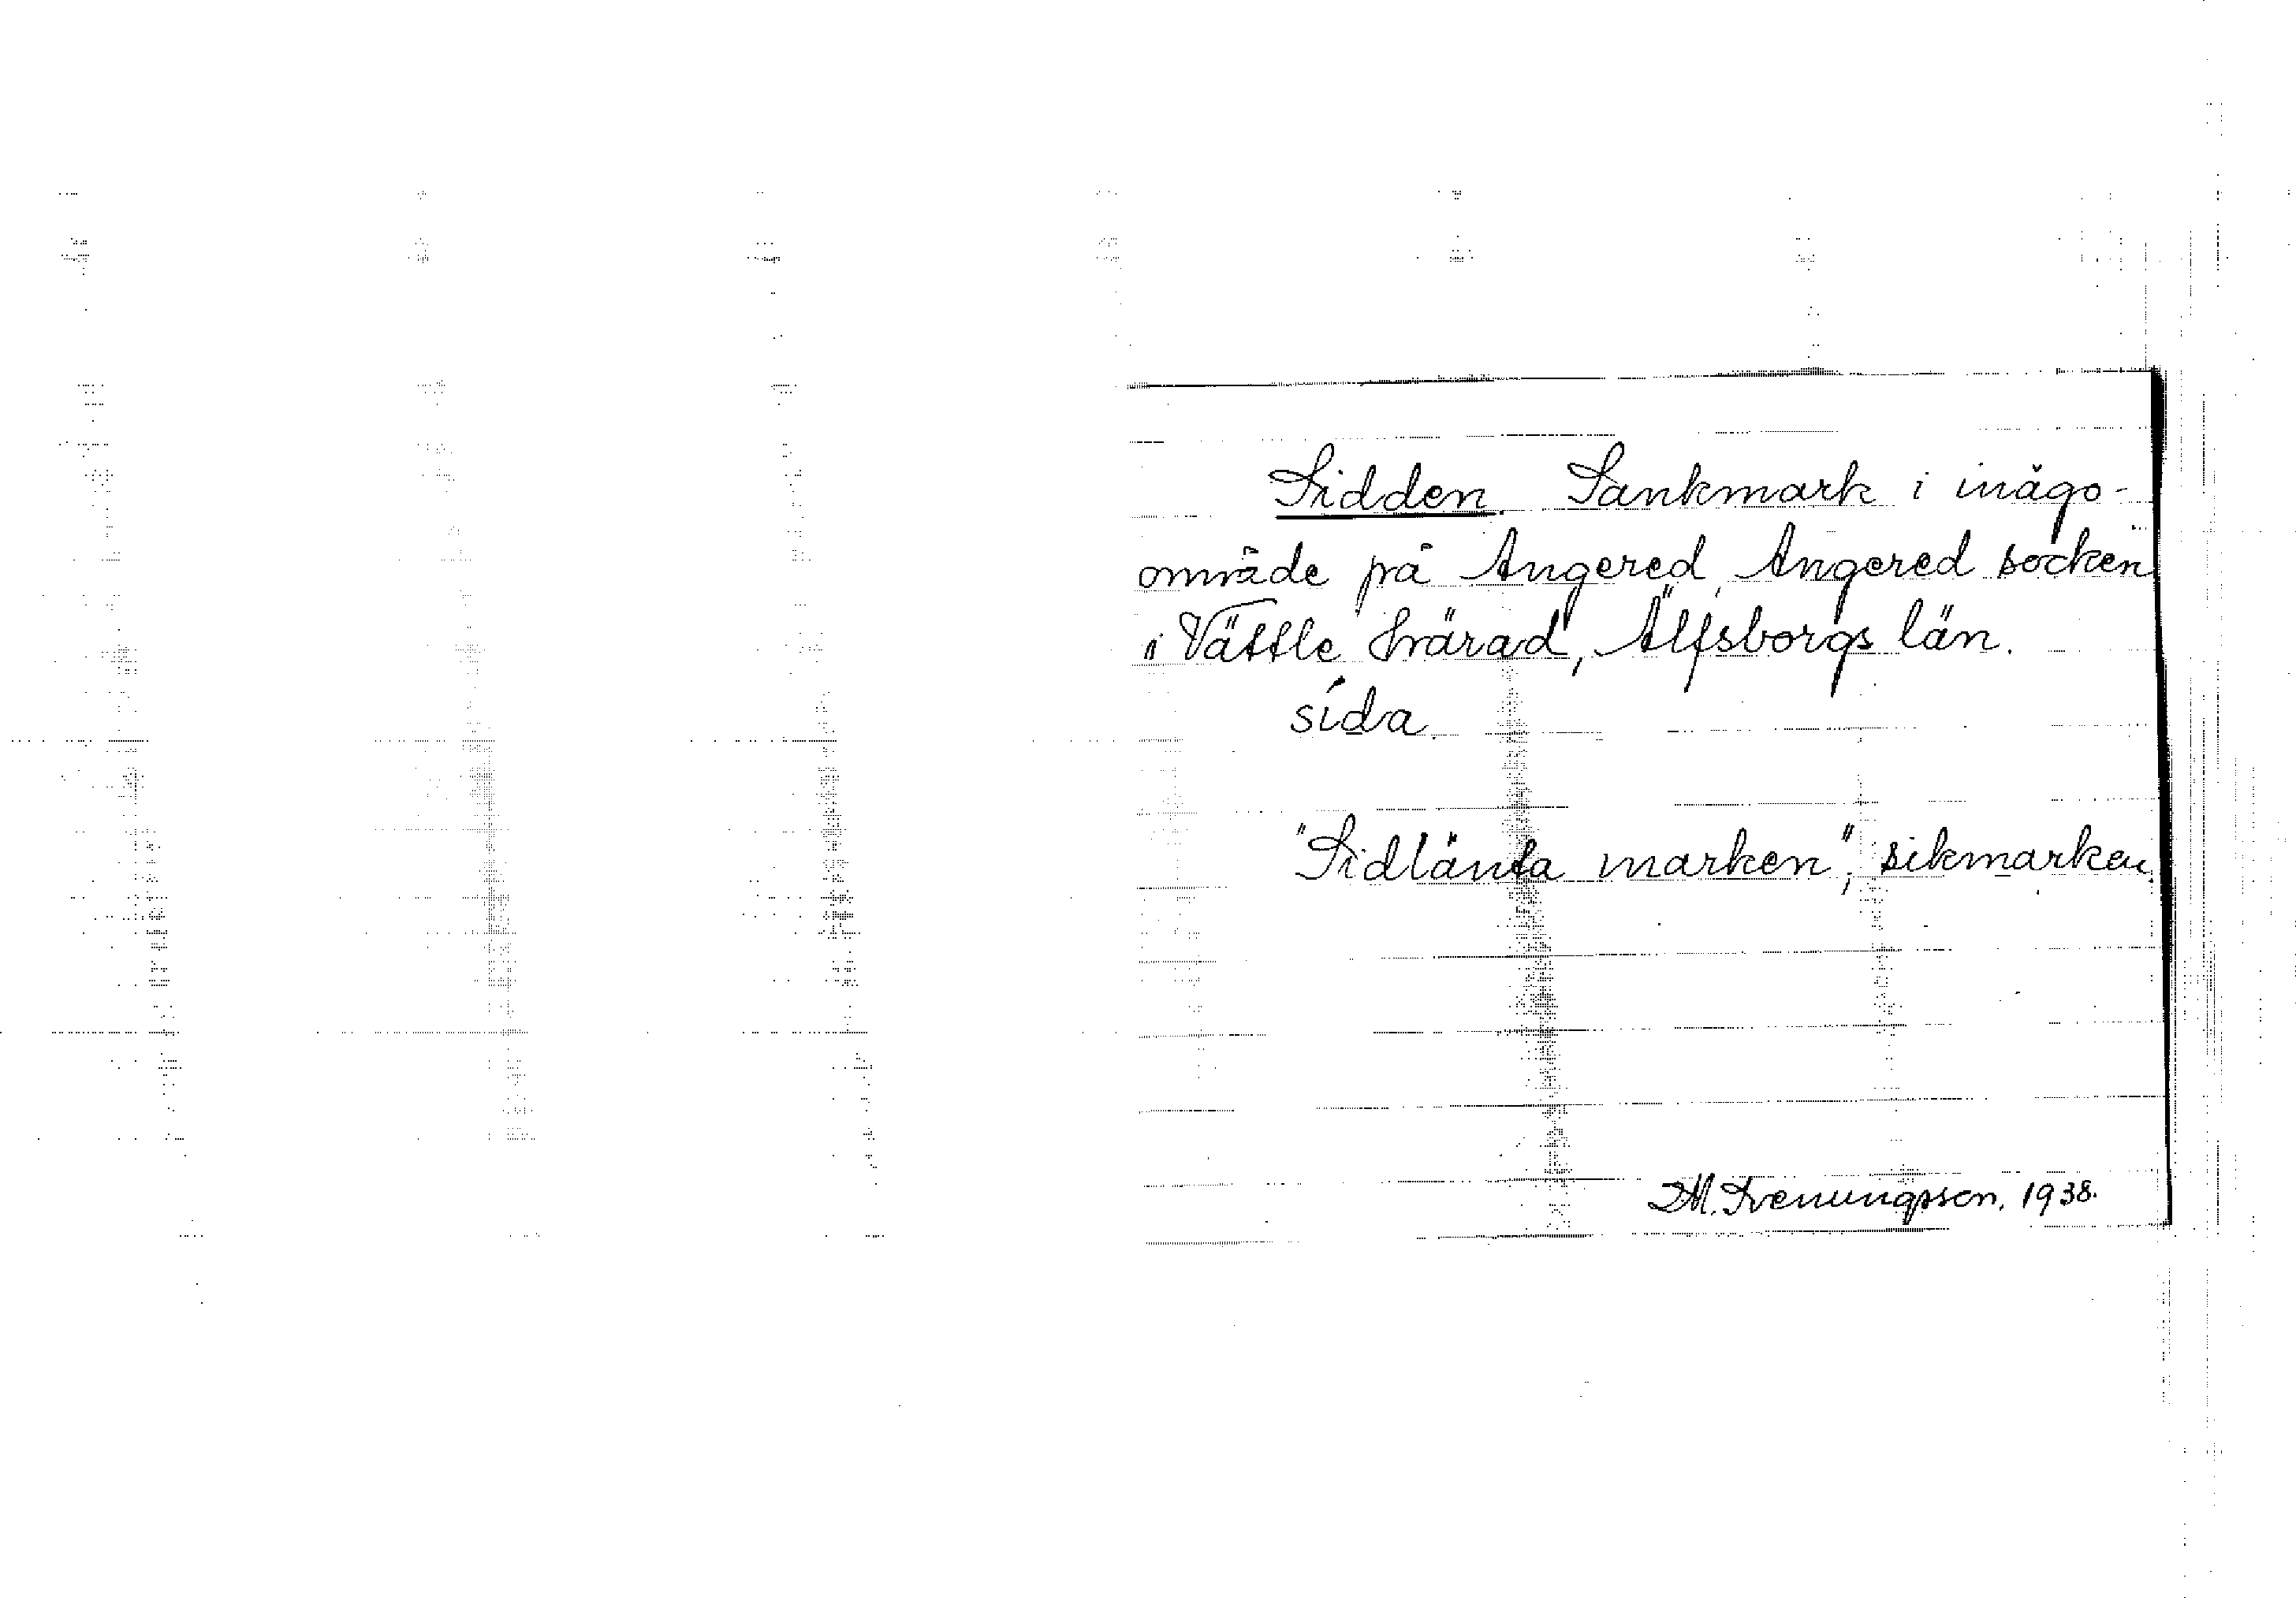 Sidden. Sankmark i inägo-
område på Angered, Angered socken
i Vättle härad, Älfsborgs län.
sída
"Sidlänta marken", sikmarken.
M. Svenungsson. 1938.